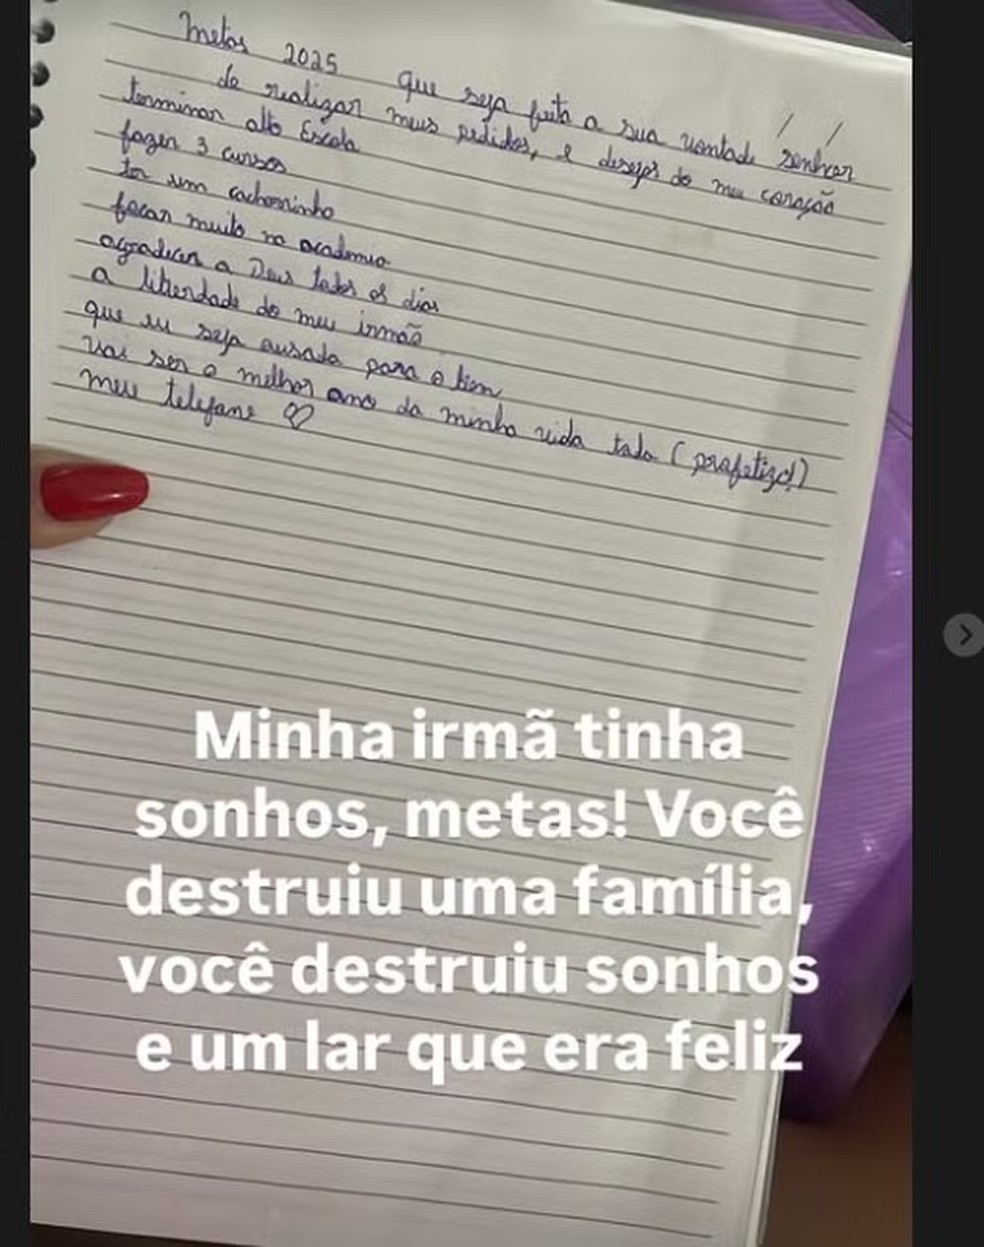 Metas 2025 que seja feita a sua vontade senhor
de realizar meus pedidos, e desejos do meu coração
terminar alto Escola
fazer 3 cursos
ter um cachorrinho
focar muito na academia
agradecer a Deus todos os dias
a liberdade do meu irmão
que eu seja ousada para o bem
vai ser o melhor ano da minha vida toda (profetizo!)
meu telefone ♡
Minha irmã tinha
sonhos, metas! Você
destruiu uma família,
você destruiu sonhos
e um lar que era feliz